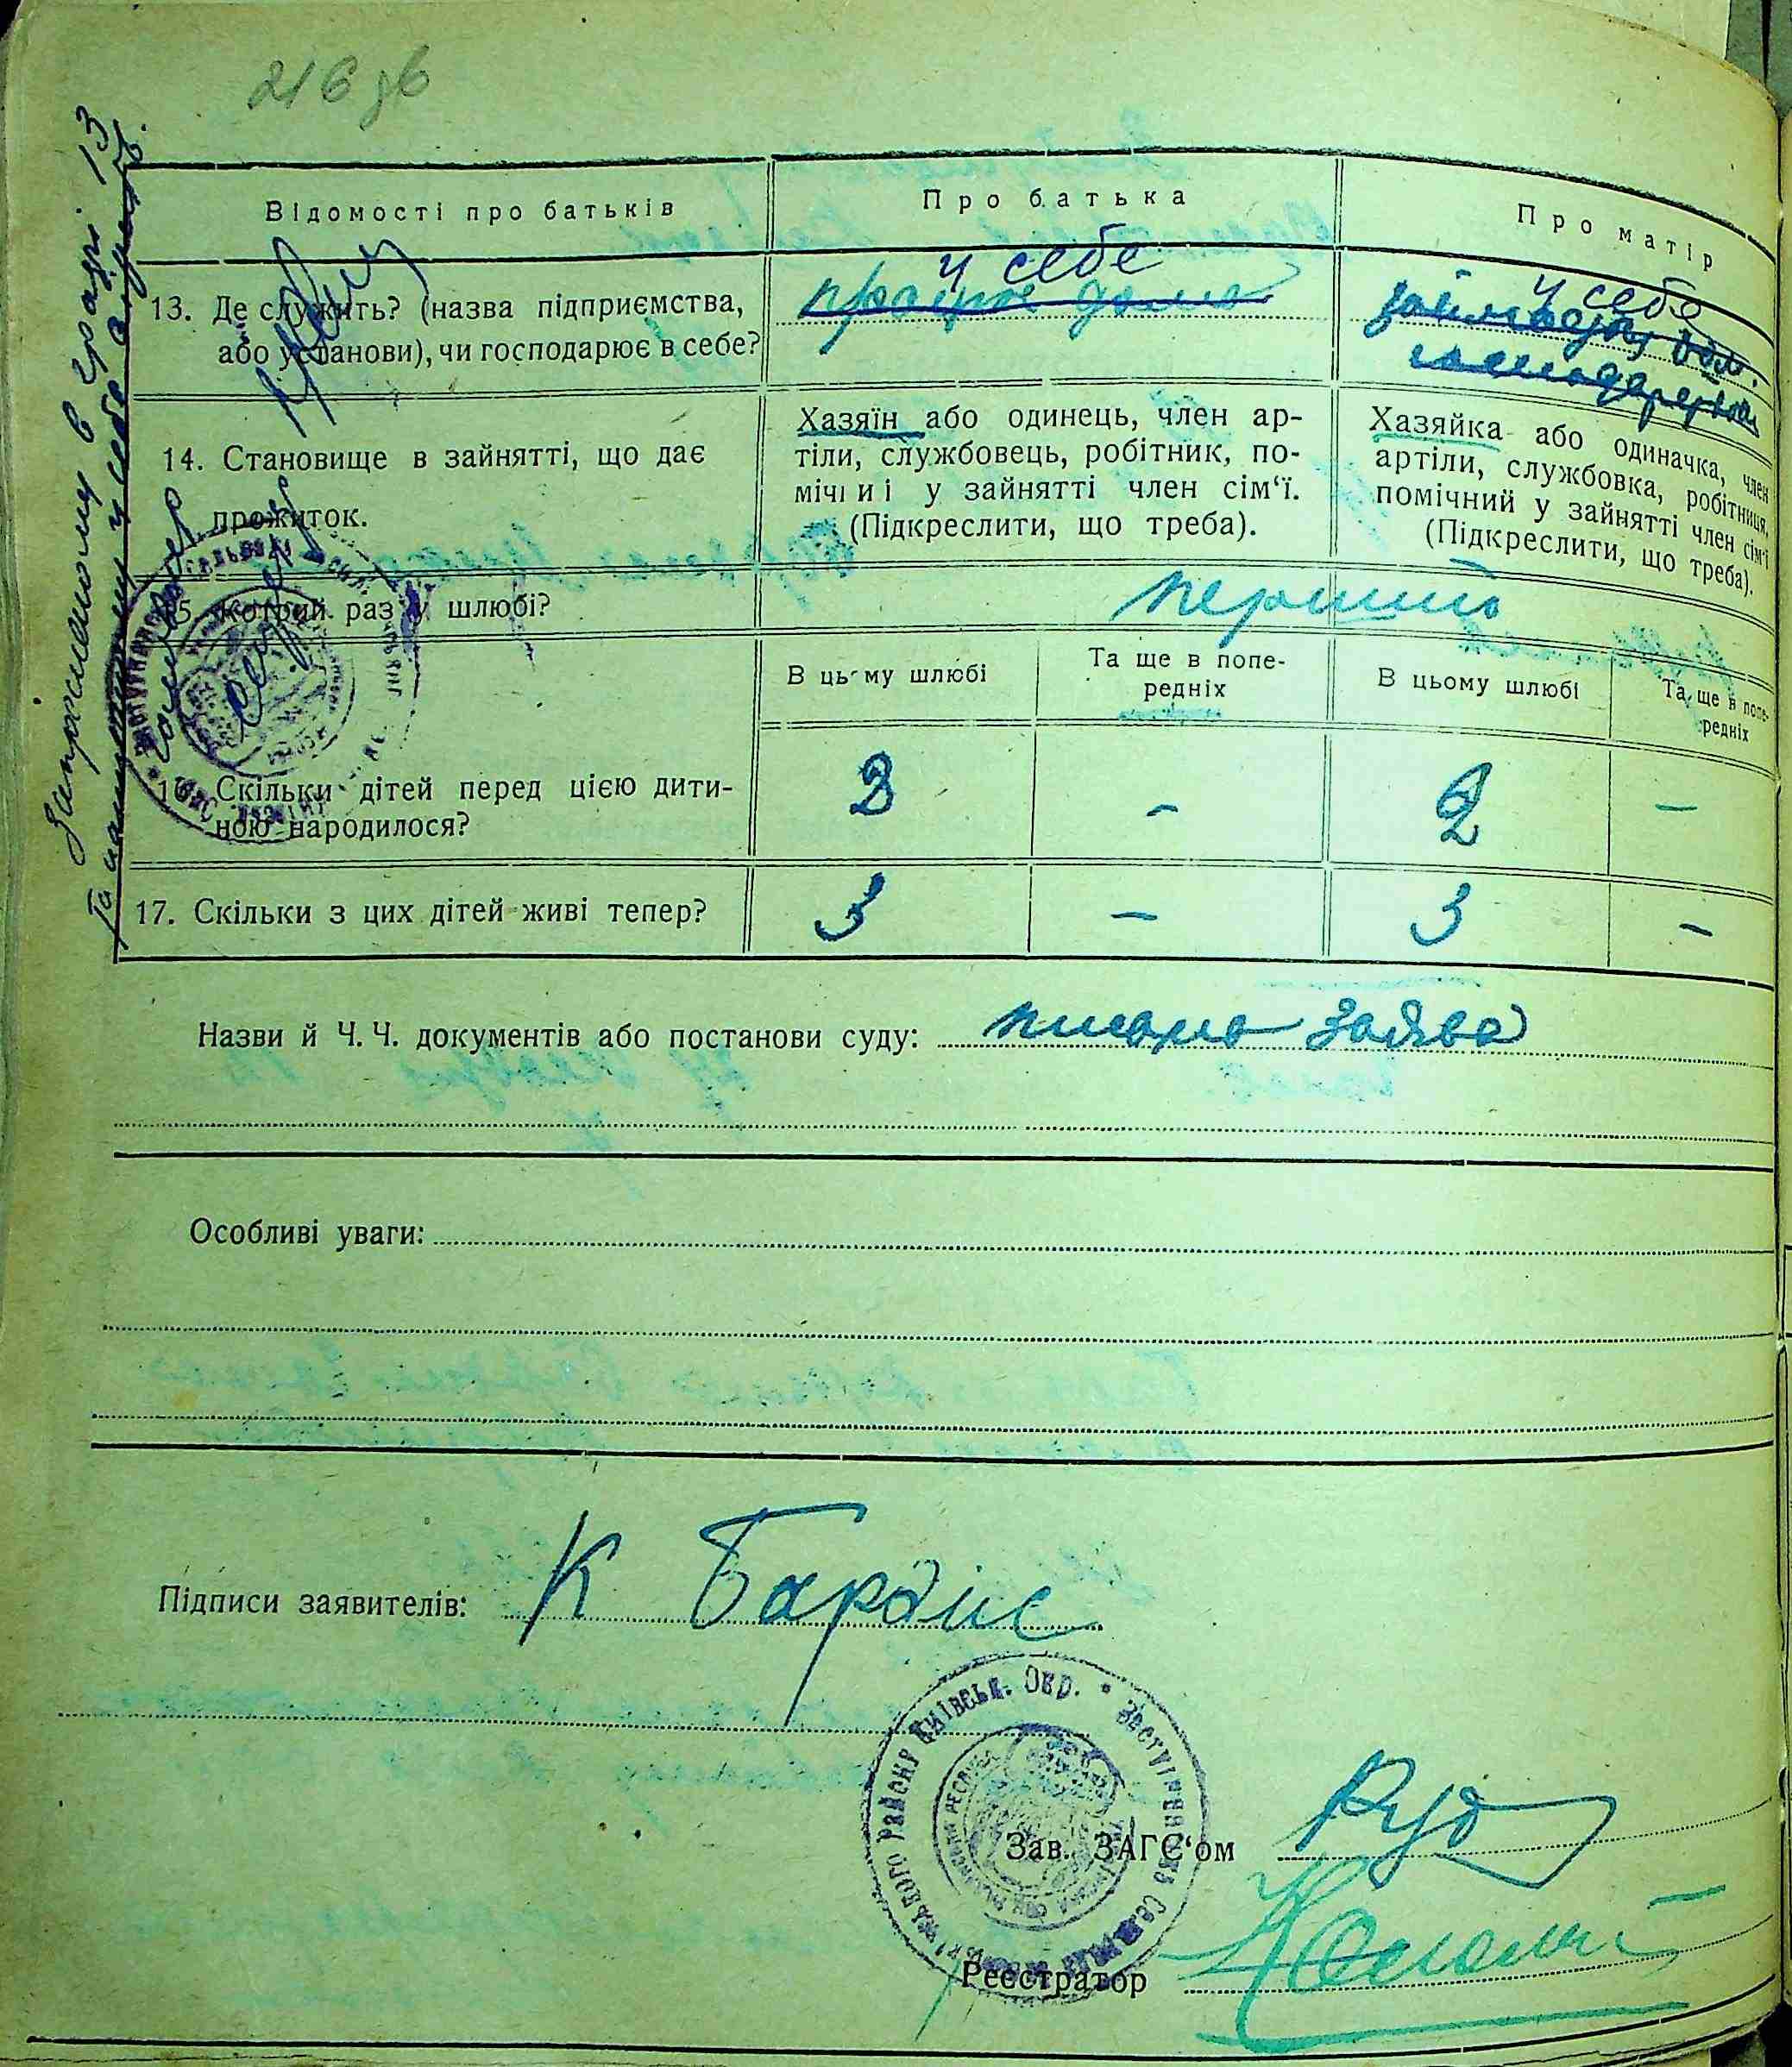 216 зв
Закресленому в графі 13
та написаному у себе
Відомості про батьків
Про батька
Про матір
13. Де служить? (назва підприємства,
або установи), чи господарює в себе?
у себе
у себе
14. Становище в зайнятті, що дає
прожиток.
Хазяїн або одинець, член ар-
тіли, службовець, робітник, по-
мічний у зайнятті член сім‘ї.
(Підкреслити, що треба).
Хазяйка або одиначка, член
артіли, службовка, робітниця,
помічний у зайнятті член сім‘ї
(Підкреслити, що треба).
15. Котрий раз у шлюбі?
перший
В цьому шлюбі
Та ще в попе-
редніх
В цьому шлюбі
Та ще в попе-
редніх
16. Скільки дітей перед цією дити-
ною народилося?
2 - 2 -
17. Скільки з цих дітей живі тепер?
3 - 3 -
Назви й Ч. Ч. документів або постанови суду: заява
Особливі уваги:
Підписи заявителів: К Бардис
Району Київськ. Окр.
Зав. ЗАГС‘ом
Реєстратор